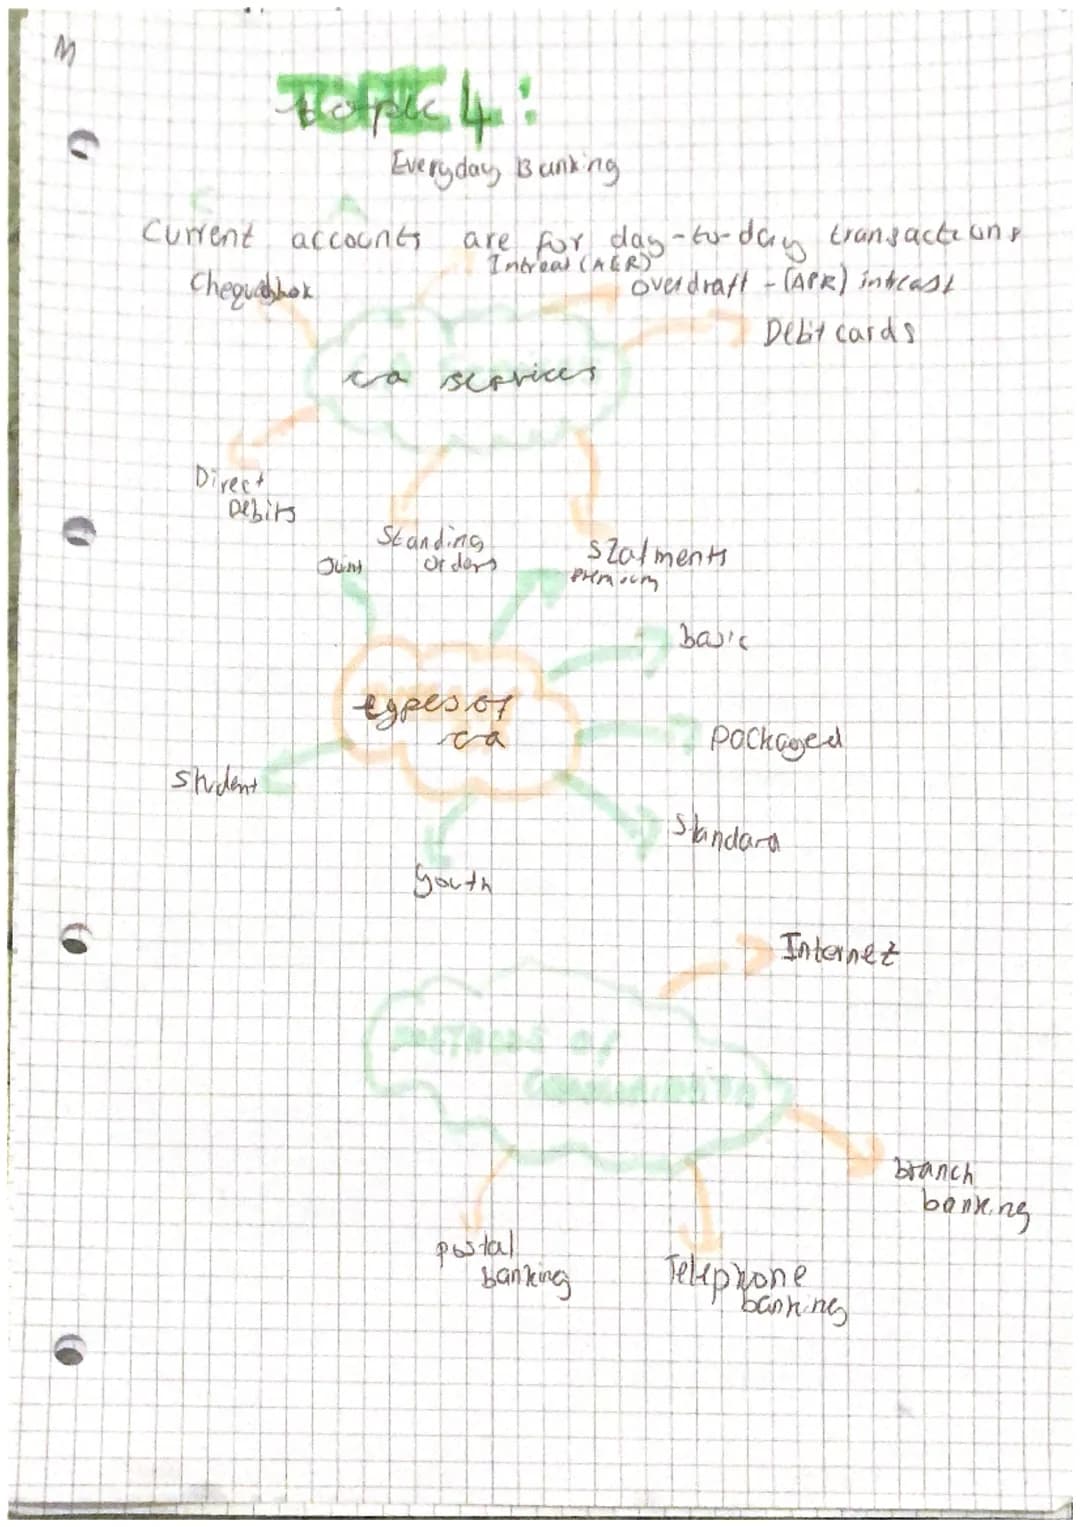 M
Topic 4:
Everyday Banking
Current accounts are for day-to-day transactions
Intreat (AER)
Chequebook
Overdraft - (APR) intreast
Debit cards
ca services
Direct
Debits
Standing
orders
Statments
Joint
Premium
basic
types of
ca
Packaged
Student
Standard
Youth
Internet
METHODS OF
COMMUNICATION
branch
banking
postal
banking
Telephone
banking